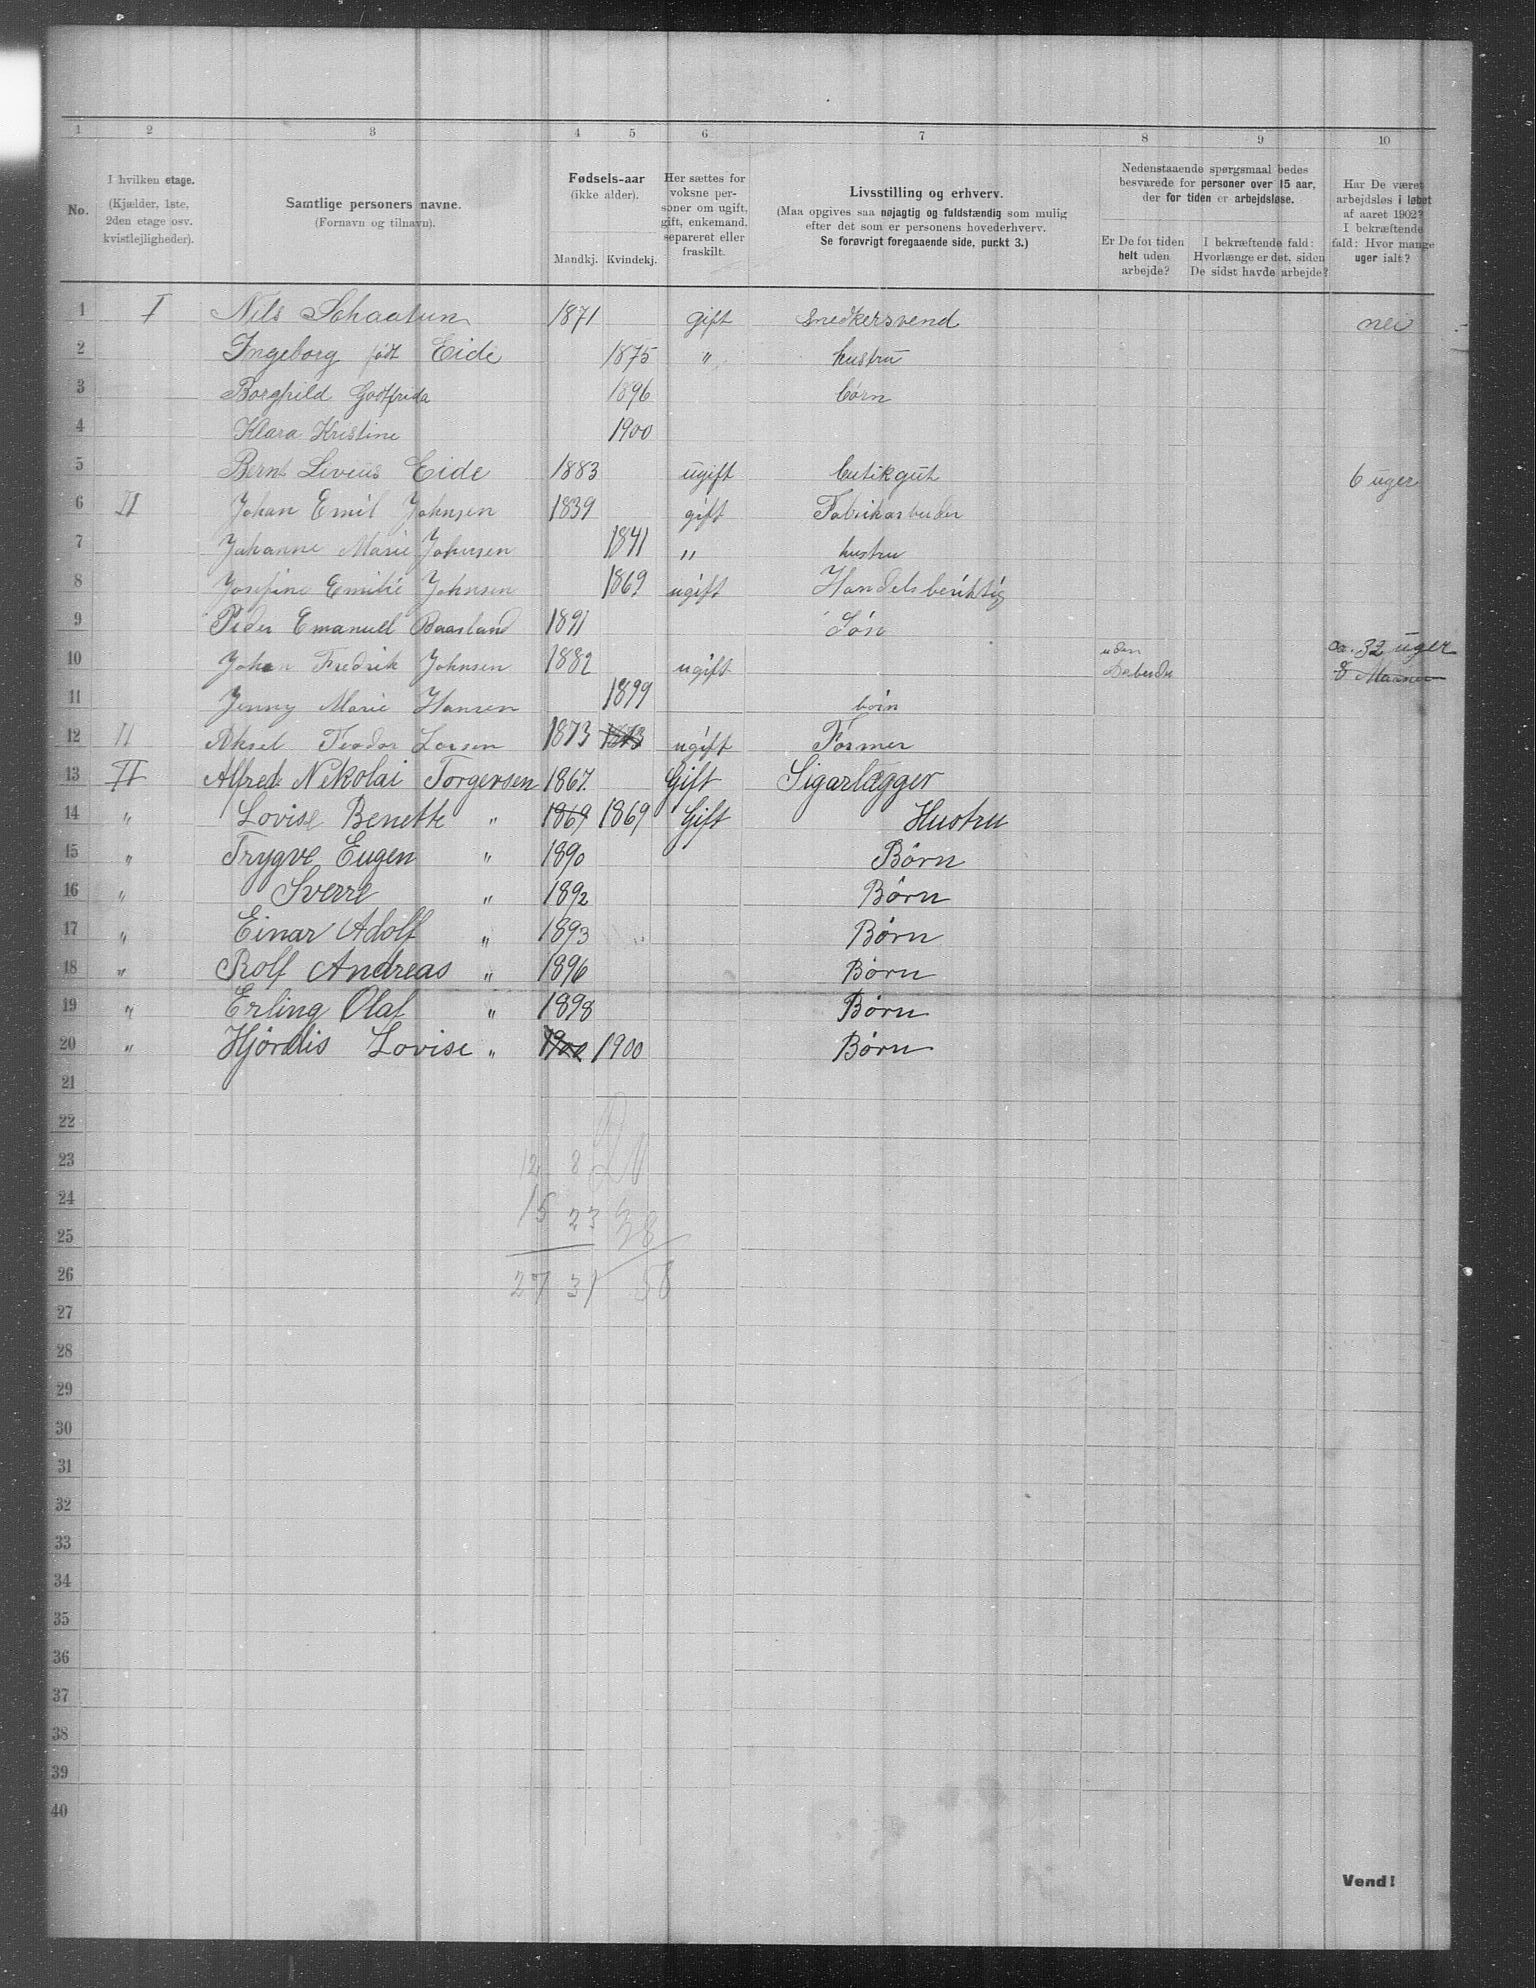 1 2 3 4 5 6 7 8 9 10
No.
I hvilken etage.
(Kjælder, 1ste,
2den etage osv.
kvistlejligheder).
Samtlige personers navne.
(Fornavn og tilnavn).
Fødsels-aar
(ikke alder).
Mandkj. Kvindekj.
Her sættes for
voksne per-
soner om ugift,
gift, enkemand,
separeret eller
fraskilt.
Livsstilling og erhverv.
(Maa opgives saa nøjagtig og fuldstændig som mulig
efter det som er personens hovederhverv.
Se forøvrigt foregaaende side, punkt 3.)
Nedenstaaende spørgsmaal bedes
besvarede for personer over 15 aar,
der for tiden er arbejdsløse.
Er De for tiden
helt uden
arbejde?
I bekræftende fald:
Hvorlænge er det, siden
De sidst havde arbejde?
Har De været
arbejdsløs i løbet
af aaret 1902?
I bekræftende
fald: Hvor mange
uger ialt?
1 I Nils Schaatun 1871 gift Snedkersvend nei
2 Ingeborg født Eide 1875 " hustru
3 Borghild Godtfrida 1896 børn
4 Klara Kristine 1900
5 Bernt Eide 1883 ugift butikgut 6 uger
6 II Johan Emil Johnsen 1839 gift Fabrikarbeider
7 Johanne Marie Johnsen 1841 " hustru
8 Josefine Emilie Johnsen 1869 ugift Handelsberiktig
9 Peder Emanuel Baasland 1891 Søn
10 Johan Fredrik Johnsen 1882 ugift uden ca. 32 uger
8 Maaner
11 Jenny Marie Hansen 1899 børn
12 II Aksel Teodor Larsen 1873 1873 ugift Former
13 II Alfred Nikolai Torgersen 1867. Gift Sigarlægger
14 " Lovise Benette " 1869 1869 Gift Hustru
15 " Trygve Eugen " 1890 Børn
16 " Sverre " 1892 Børn
17 " Einar Adolf " 1893 Børn
18 " Rolf Andreas " 1896 Børn
19 " Erling Olaf " 1898 Børn
20 " Hjørdis Lovise " 1900 1900 Børn
21
22
23 12 8 20
24 15 23 38
25
26 27 31 58
27
28
29
30
31
32
33
34
35
36
37
38
39
40
Vend!